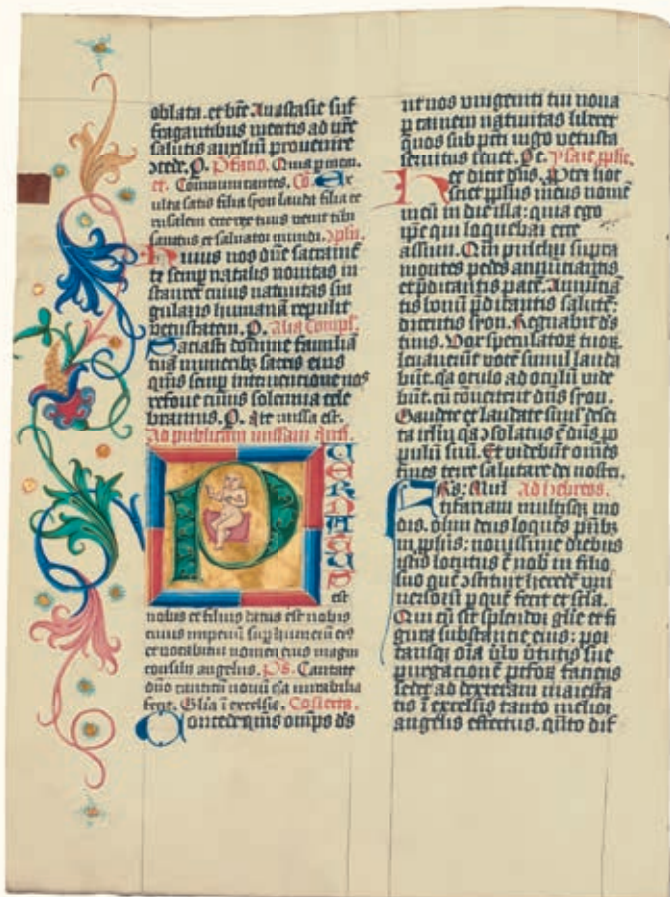 oblata. et bte Anastasie suf
fragantibus meritis ad nre
salutis auxiliu provenire
ɔcede. P. Pfatio. Quia p incar.
et. Communicantes. Co. Ex
ulta satis filia syon lauda filia ie
rusalem ecce rex tuus venit tibi
sanctus et salvator mundi.
Huius nos dne sacrame
ti semp natalis novitas in
stauret cuius nativitas sin
gularis humana repulit
vetustatem. P. Alia Compl.
Saciasti domine familia
tua muneribz sacris eius
qs semp intervencione nos
refove cuius solemnia cele
bramus. P. Ite missa est.
Ad publicam missam
PUER NATUS
est
nobis et filius datus est nobis
cuius imperiu sup humeru eis
et vocabitur nomen eius magni
consilii angelus. PS. Cantate
dno canticu novu qa mirabilia
fecit. Glia i excelsis. Collecta.
Concede qs omps ds
ut nos unigeniti tui nova
p carnem nativitas liberet
quos sub pcti iugo vetusta
servitus tenet. P. Ysaie pphe.
Hec dicit dns. Ppter hoc
sciet pplus meus nome
meu in die illa: quia ego
ipe qui loquebar ecce
assum. Qm pulchri supra
montes pedes annuciantis
et pdicantis pace. Annucia
tis bonu pdicantis salute:
dicentis syon. Regnabit ds
tuus. Vox speculatoru tuoru.
levaverut voce simul lauda
but. qa oculo ad oculu vide
but. cu coverterit dns syon.
Gaudete et laudate simul deser
ta irlm qa ɔsolatus e dns po
pulu suu. Et videbut omes
fines terre salutare dei nostri.
Ad hebreos.
Multifariam multisqz mo
dis. olim deus loques pribz
in pphis: novissime diebus
istis locutus e nob in filio
suo que ɔstituit herede uni
versoru p que fecit et scla.
Qui cu sit splendor glie et fi
gura substantie eius: por
tansqz oia vbo vtutis sue
purgatione pctoru faciens
sedet ad dexteram maiesta
tis i excelsis tanto melior
angelis effectus. quto dif